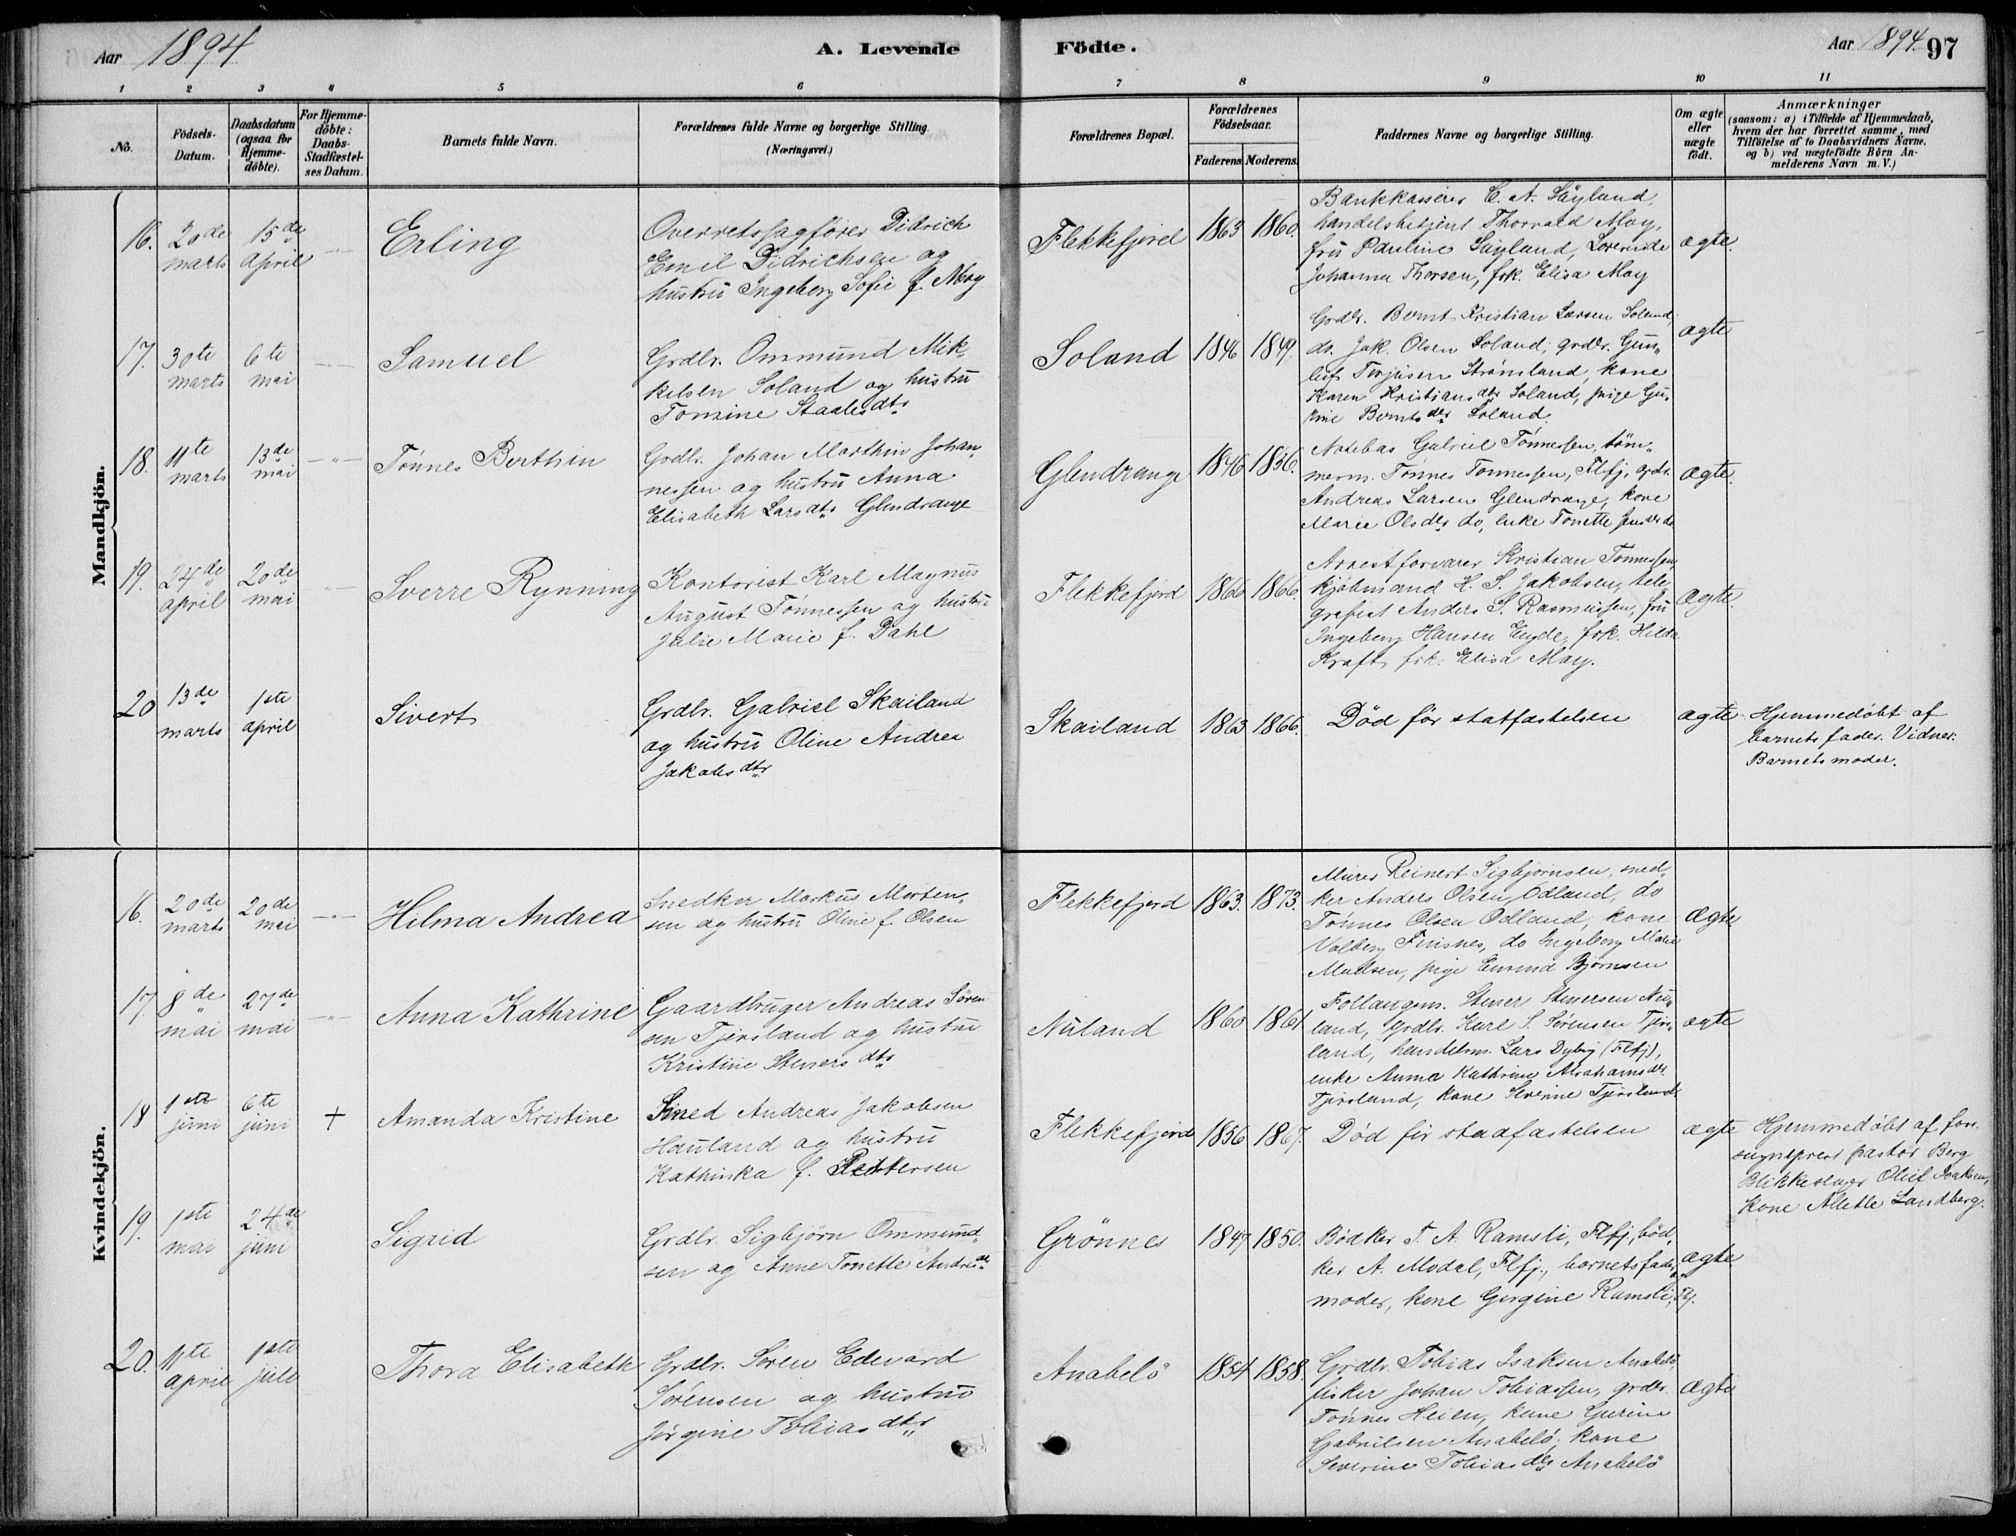 Aar 1894
A. Levende Födte.
Aar 1894. 97
1 2 3 4 5 6 7 8 9 10 11
No.
Födsels-Datum.
Daabsdatum (ogsaa for Hjemme-döbte).
For Hjemme-döbte: Daabs-Stadfæstel-ses Datum.
Barnets fulde Navn.
Forældrenes fulde Navne og borgerlige Stilling.
(Næringsvei.)
Forældrenes Bopæl.
Forældrenes Födselsaar.
Faderens. Moderens.
Faddernes Navne og borgerlige Stilling.
Om ægte eller uægte födt.
Anmærkninger
(saasom: a) i Tilfælde af Hjemmedaab,
hvem der har forrettet samme, med
Tilföielse af to Daabsvidners Navne,
og b) ved uægtefödte Börn An-
melderens Navn m. V.)
Mandkjön.
16. 20de marts 15de april Erling
Overretssagfører Didrich
Emil Didrichsen og
hustru Ingeborg Sofie f. May
Flekkefjord 1863 1860.
Bankkasserer C. A. Søyland,
handelsbetjent Thorvald May,
fru Pauline Søyland, Lærerinde
Johanna Thorsen, frk. Elisa May
ægte.
17. 30te marts 6te mai Samuel
Grdbr. Ommund Mik-
kelsen Soland og hustru
Tomine Staalesdtr
Soland 1846 1849.
Grdbr. Bernt Kristian Larsen Soland,
do. Jak. Olsen Soland, grdbr. Gun-
leif Torjusen Strømland, kone
Karen Kristiansdtr Soland, pige Gu-
rine Berntsdtr Soland.
ægte
18. 11te marts 13de mai Tønnes Berthin
Grdbr. Johan Marthin Johan-
nessen og hustru Anna
Elisabeth Larsdtr Glendrange
Glendrange 1846 1836.
Notebas Gabriel Tønnessen, tøm-
merm. Tønnes Tønnessen, Flfj, grdbr.
Andreas Larsen Glendrange, kone
Marie Olsdtr do, enke Tonette Jensdtr do
ægte.
19. 24de april 20de mai Sverre Rynning
Kontorist Karl Magnus
August Tønnessen og hustru
Julie Marie f. Dahl
Flekkefjord 1866 1866.
Arrestforvarer Kristian Tønnessen,
kjøbmand H. S. Jakobsen, tele-
grafist Anders S. Rasmussen, fru
Ingeborg Hansen Eyde, frk. Hilda
Kraft, frk. Elisa May.
ægte.
20 13de marts 1ste april Sivert
Grdbr. Gabriel Skailand
og hustru Oline Andrea
Jakobsdtr
Skailand 1863 1866.
Død før statfæstelsen
ægte.
Hjemmedøbt af
barnets fader. Vidner:
Barnets moder.
Kvindekjön.
16. 20de marts 20de mai Hilma Andrea
Snedker Markus Morten-
sen og hustru Oline f. Olsen
Flekkefjord 1863. 1873.
Murer Reinert Sigbjørnsen, sned-
ker Anders Olsen Odland, do
Tønnes Olsen Odland, kone
Valborg, do Ingeborg Marie
pige Emma Bjørnsen
ægte
17. 8de mai 27de mai Anna Kathrine
Gaardbruger Andreas Søren-
sen Tjersland og hustru
Kristine Stenersdtr
Nuland 1860 1861.
Follaugsm. Stener Stenersen Nu-
land, Grdbr. Karl S. Sørensen Tjers-
land, handelsm. Lars Dyby (Flfj),
enke Anna Kathrine Abrahamsdtr
Tjersland, kone Severine Tjersland
ægte
18 1ste juni 6te juni + Amanda Kristine
Smed Andreas Jakobsen
Hauland og hustru
Kathinka f. Pettersen
Flekkefjord 1856 1867.
Død før stadfæstelsen
ægte
Hjemmedøbt af for.
sogneprest pastor Berg
Blikkenslager Oluf Isaksen,
kone Alette Sandberg.
19. 1ste mai 24de juni Sigrid
Grdbr. Sigbjørn Ommund-
sen og Anne Tonette Andrisdtr
Grønnes 1847 1850.
Bødker T. A. Ramsli, Flfj, bød-
ker A. Modal, Flfj., barnets fader,
moder, kone Gurgine Ramsli, Flfj.
ægte
20. 11te april 1ste juli Thora Elisabeth
Grdbr. Søren Edvard
Sørensen og hustru
Jørgine Tobiasdtr
Anabelø 1854 1858.
Grdbr. Tobias Isaksen Anabelø,
fisker Johan Tobiassen, grdbr.
Tønnes Heien, kone Gurine
Gabrielsen Anabelø, kone
Severine Tobiasdtr Anabelø
ægte